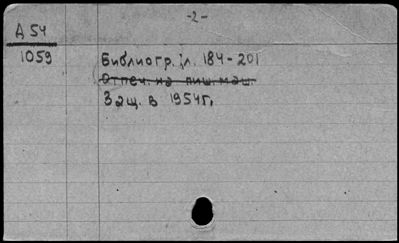 -2-
Д 54
1059
Библиогр.: л. 184-201
Отпеч. на пиш. маш.
Защ. в 1954г.